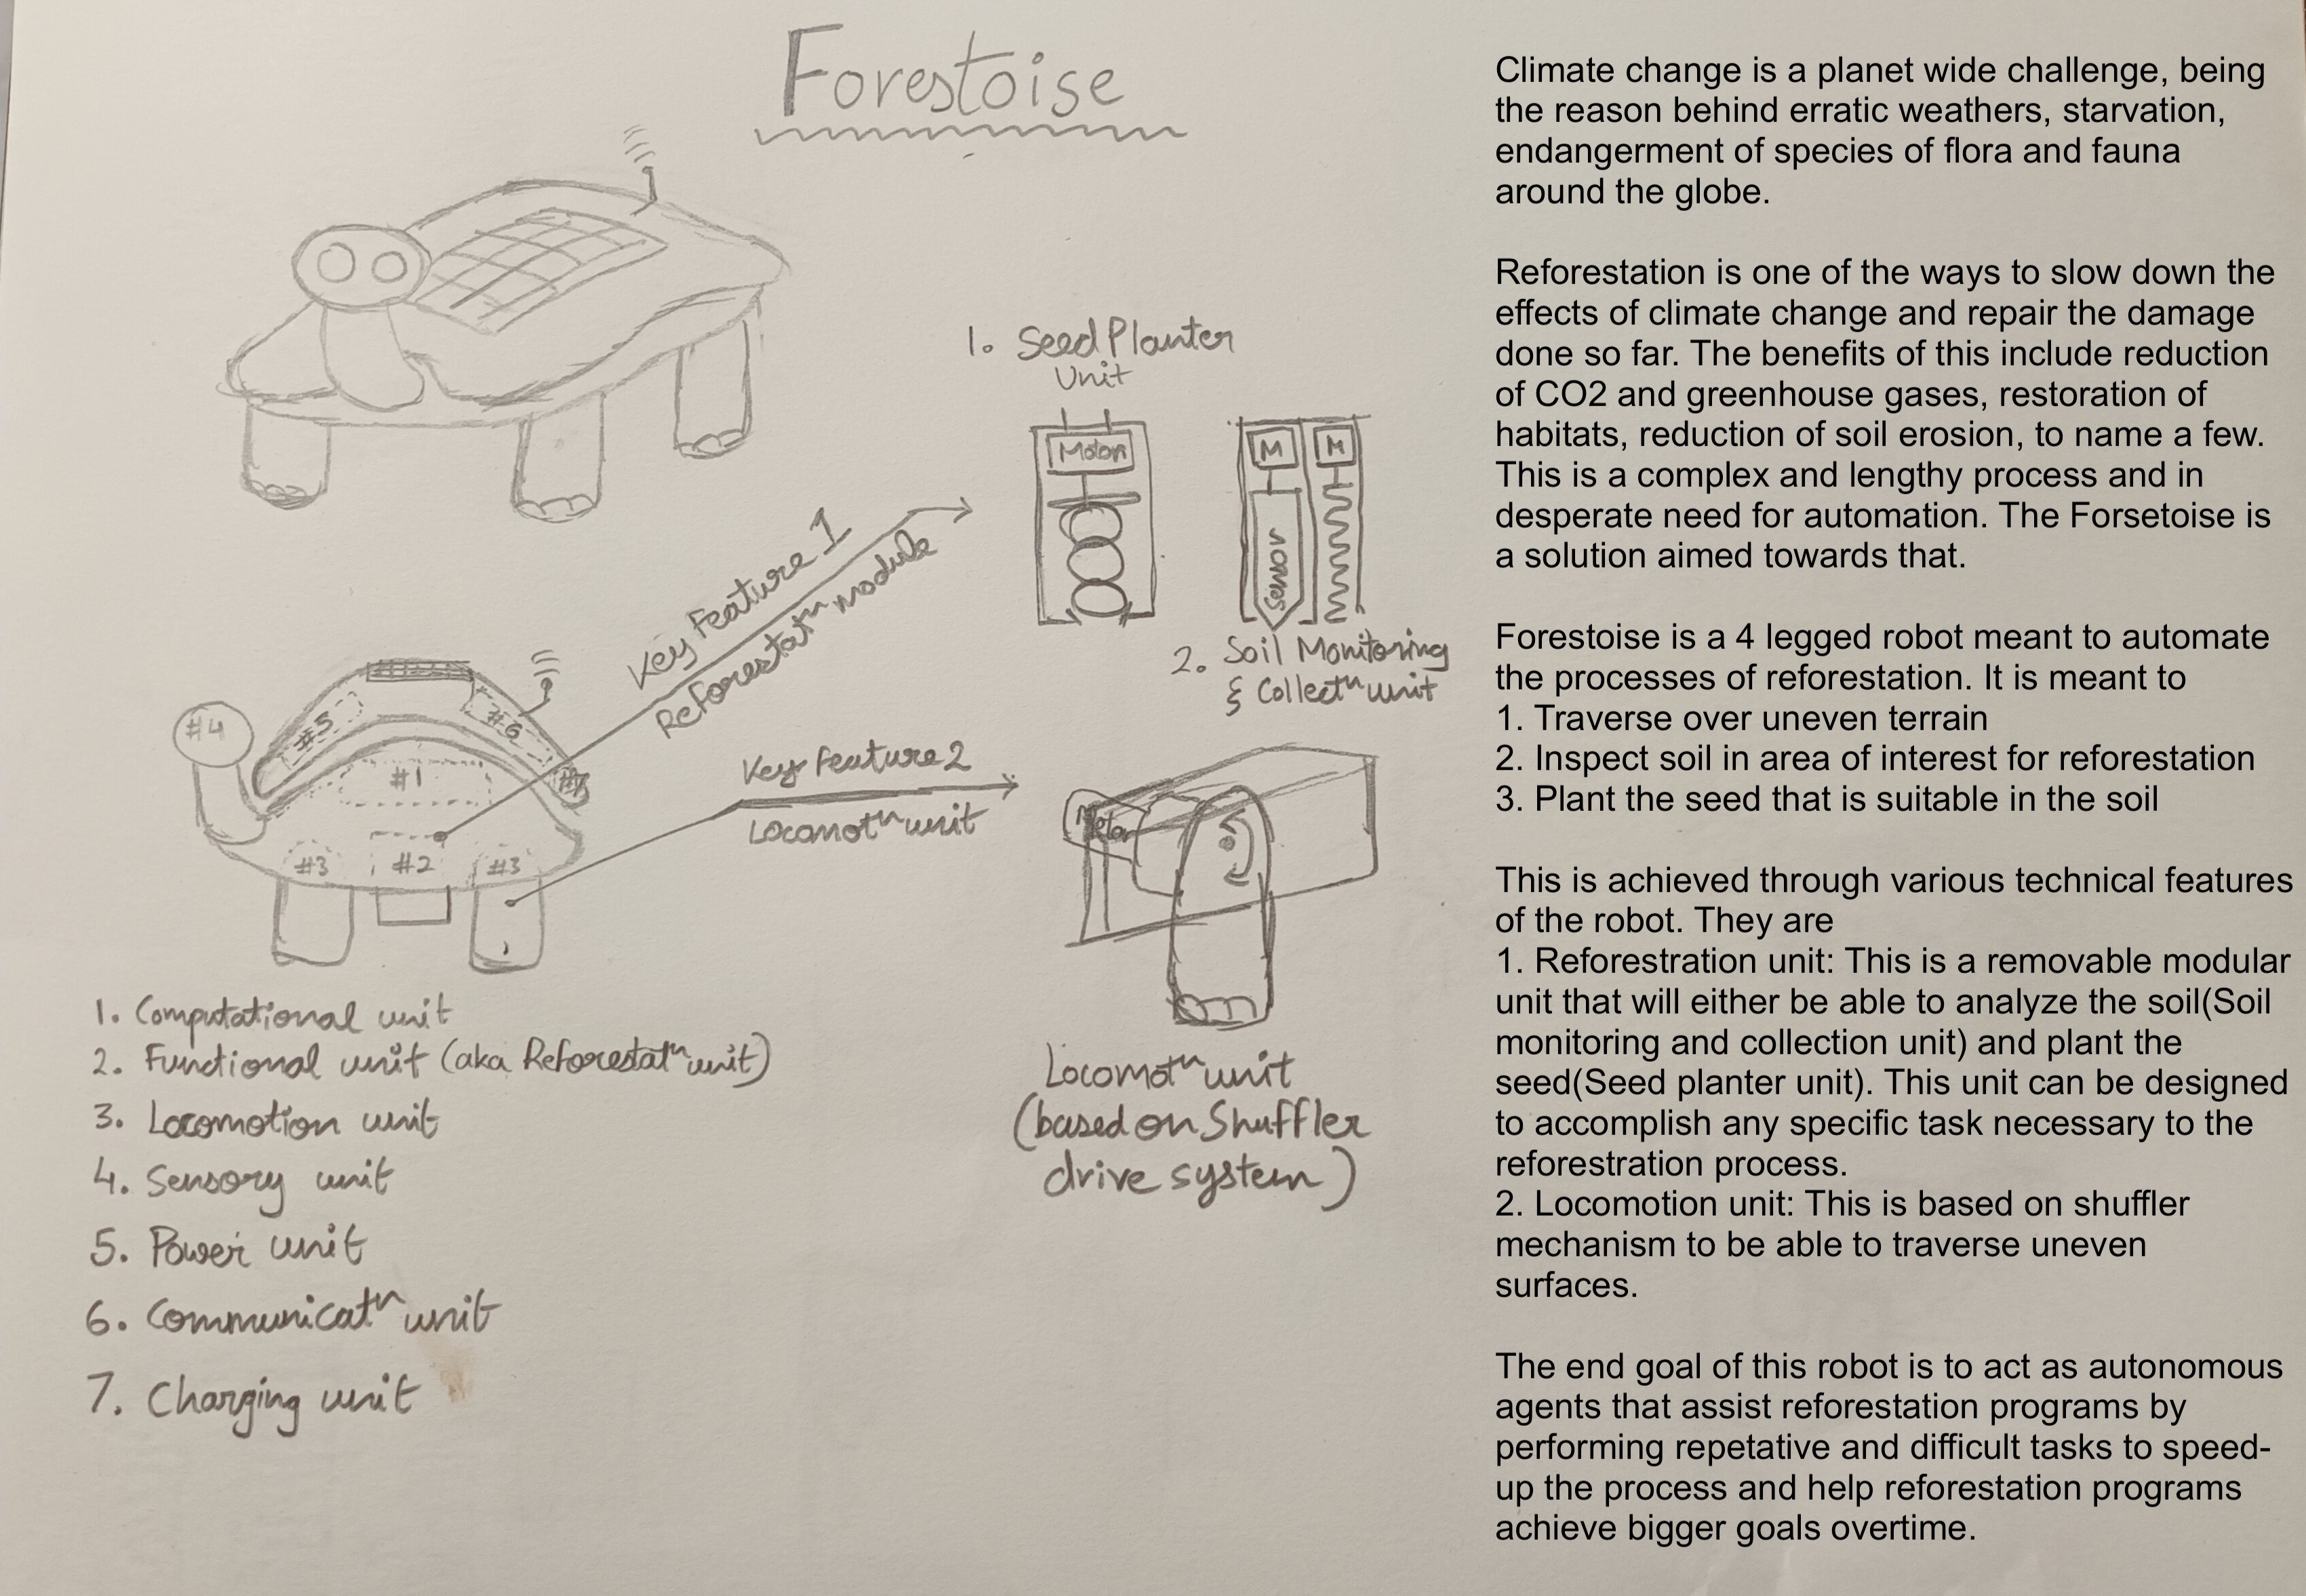 Forestoise
1. Seed Planter
Unit
Motor
M M
sensor
2. Soil Monitoring
& Collectⁿ unit
Key Feature 1
Reforestatⁿ module
#4
#5
#6
#1
#7
#3 #2 #3
Key Feature 2
Locomotⁿ unit
Motor
Locomotⁿ unit
(based on Shuffler
drive system)
1. Computational unit
2. Functional unit (aka Reforestatⁿ unit)
3. Locomotion unit
4. Sensory unit
5. Power unit
6. Communicatⁿ unit
7. Charging unit
Climate change is a planet wide challenge, being
the reason behind erratic weathers, starvation,
endangerment of species of flora and fauna
around the globe.
Reforestation is one of the ways to slow down the
effects of climate change and repair the damage
done so far. The benefits of this include reduction
of CO2 and greenhouse gases, restoration of
habitats, reduction of soil erosion, to name a few.
This is a complex and lengthy process and in
desperate need for automation. The Forsetoise is
a solution aimed towards that.
Forestoise is a 4 legged robot meant to automate
the processes of reforestation. It is meant to
1. Traverse over uneven terrain
2. Inspect soil in area of interest for reforestation
3. Plant the seed that is suitable in the soil
This is achieved through various technical features
of the robot. They are
1. Reforestration unit: This is a removable modular
unit that will either be able to analyze the soil(Soil
monitoring and collection unit) and plant the
seed(Seed planter unit). This unit can be designed
to accomplish any specific task necessary to the
reforestration process.
2. Locomotion unit: This is based on shuffler
mechanism to be able to traverse uneven
surfaces.
The end goal of this robot is to act as autonomous
agents that assist reforestation programs by
performing repetative and difficult tasks to speed-
up the process and help reforestation programs
achieve bigger goals overtime.